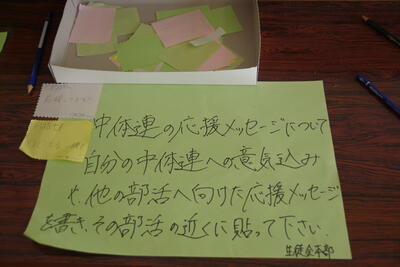 中体連の応援メッセージについて
自分の中体連への意気込み
や、他の部活へ向けた応援メッセージ
を書き、その部活の近くに貼って下さい.
生徒会本部